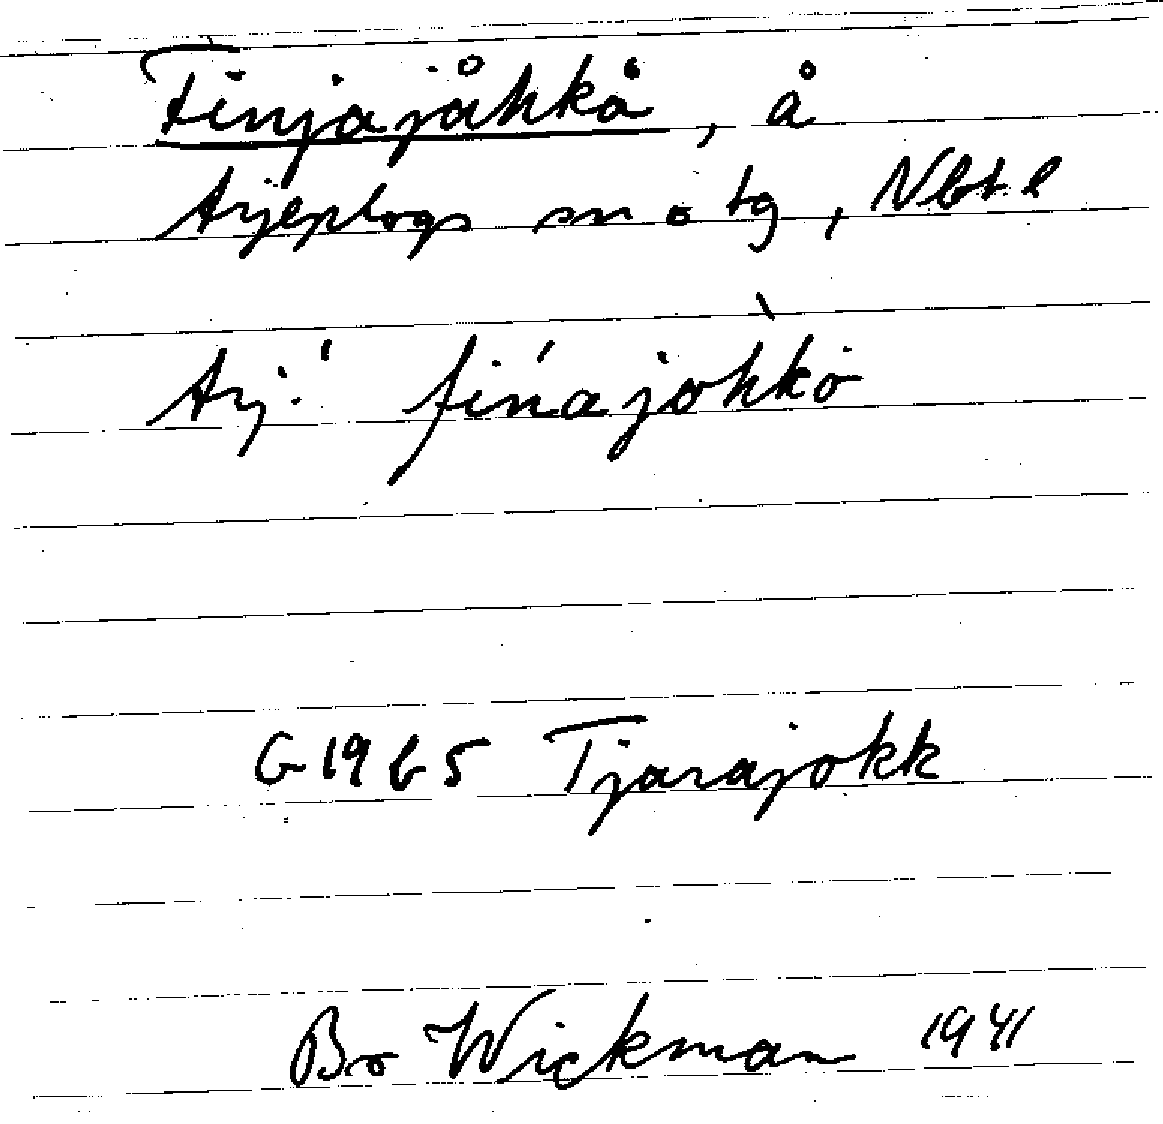 Finjajåhkå, å
Arjeplogs sn o tg, Nbt l
Arj.
G 1965 Tjarajokk
Bo Wickman 1941